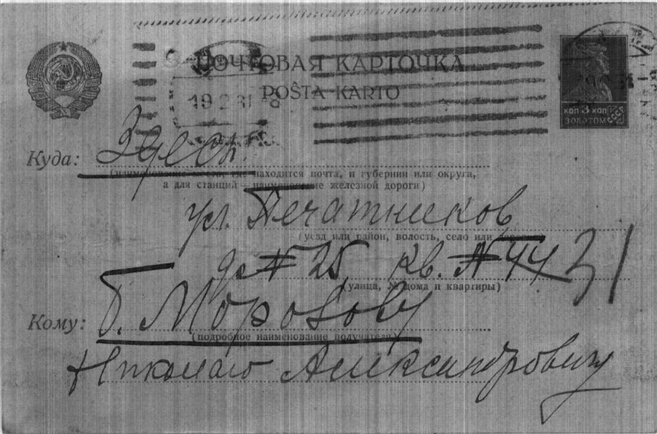 ПОЧТОВАЯ КАРТОЧКА
POŜTA KARTO
19 2 31 8
КОП 3 КОП
ЗОЛОТОМ
Куда: Здесь.
(наименование места, где находится почта, и губернии или округа,
а для станций—наименование железной дороги)
ул. Печатников,
(уезд или район, волость, село или
д. № 25, кв. № 44 31
(улица, № дома и квартиры)
Кому: Б. Моровову
(подробное наименование получателя)
Николаю Александровичу